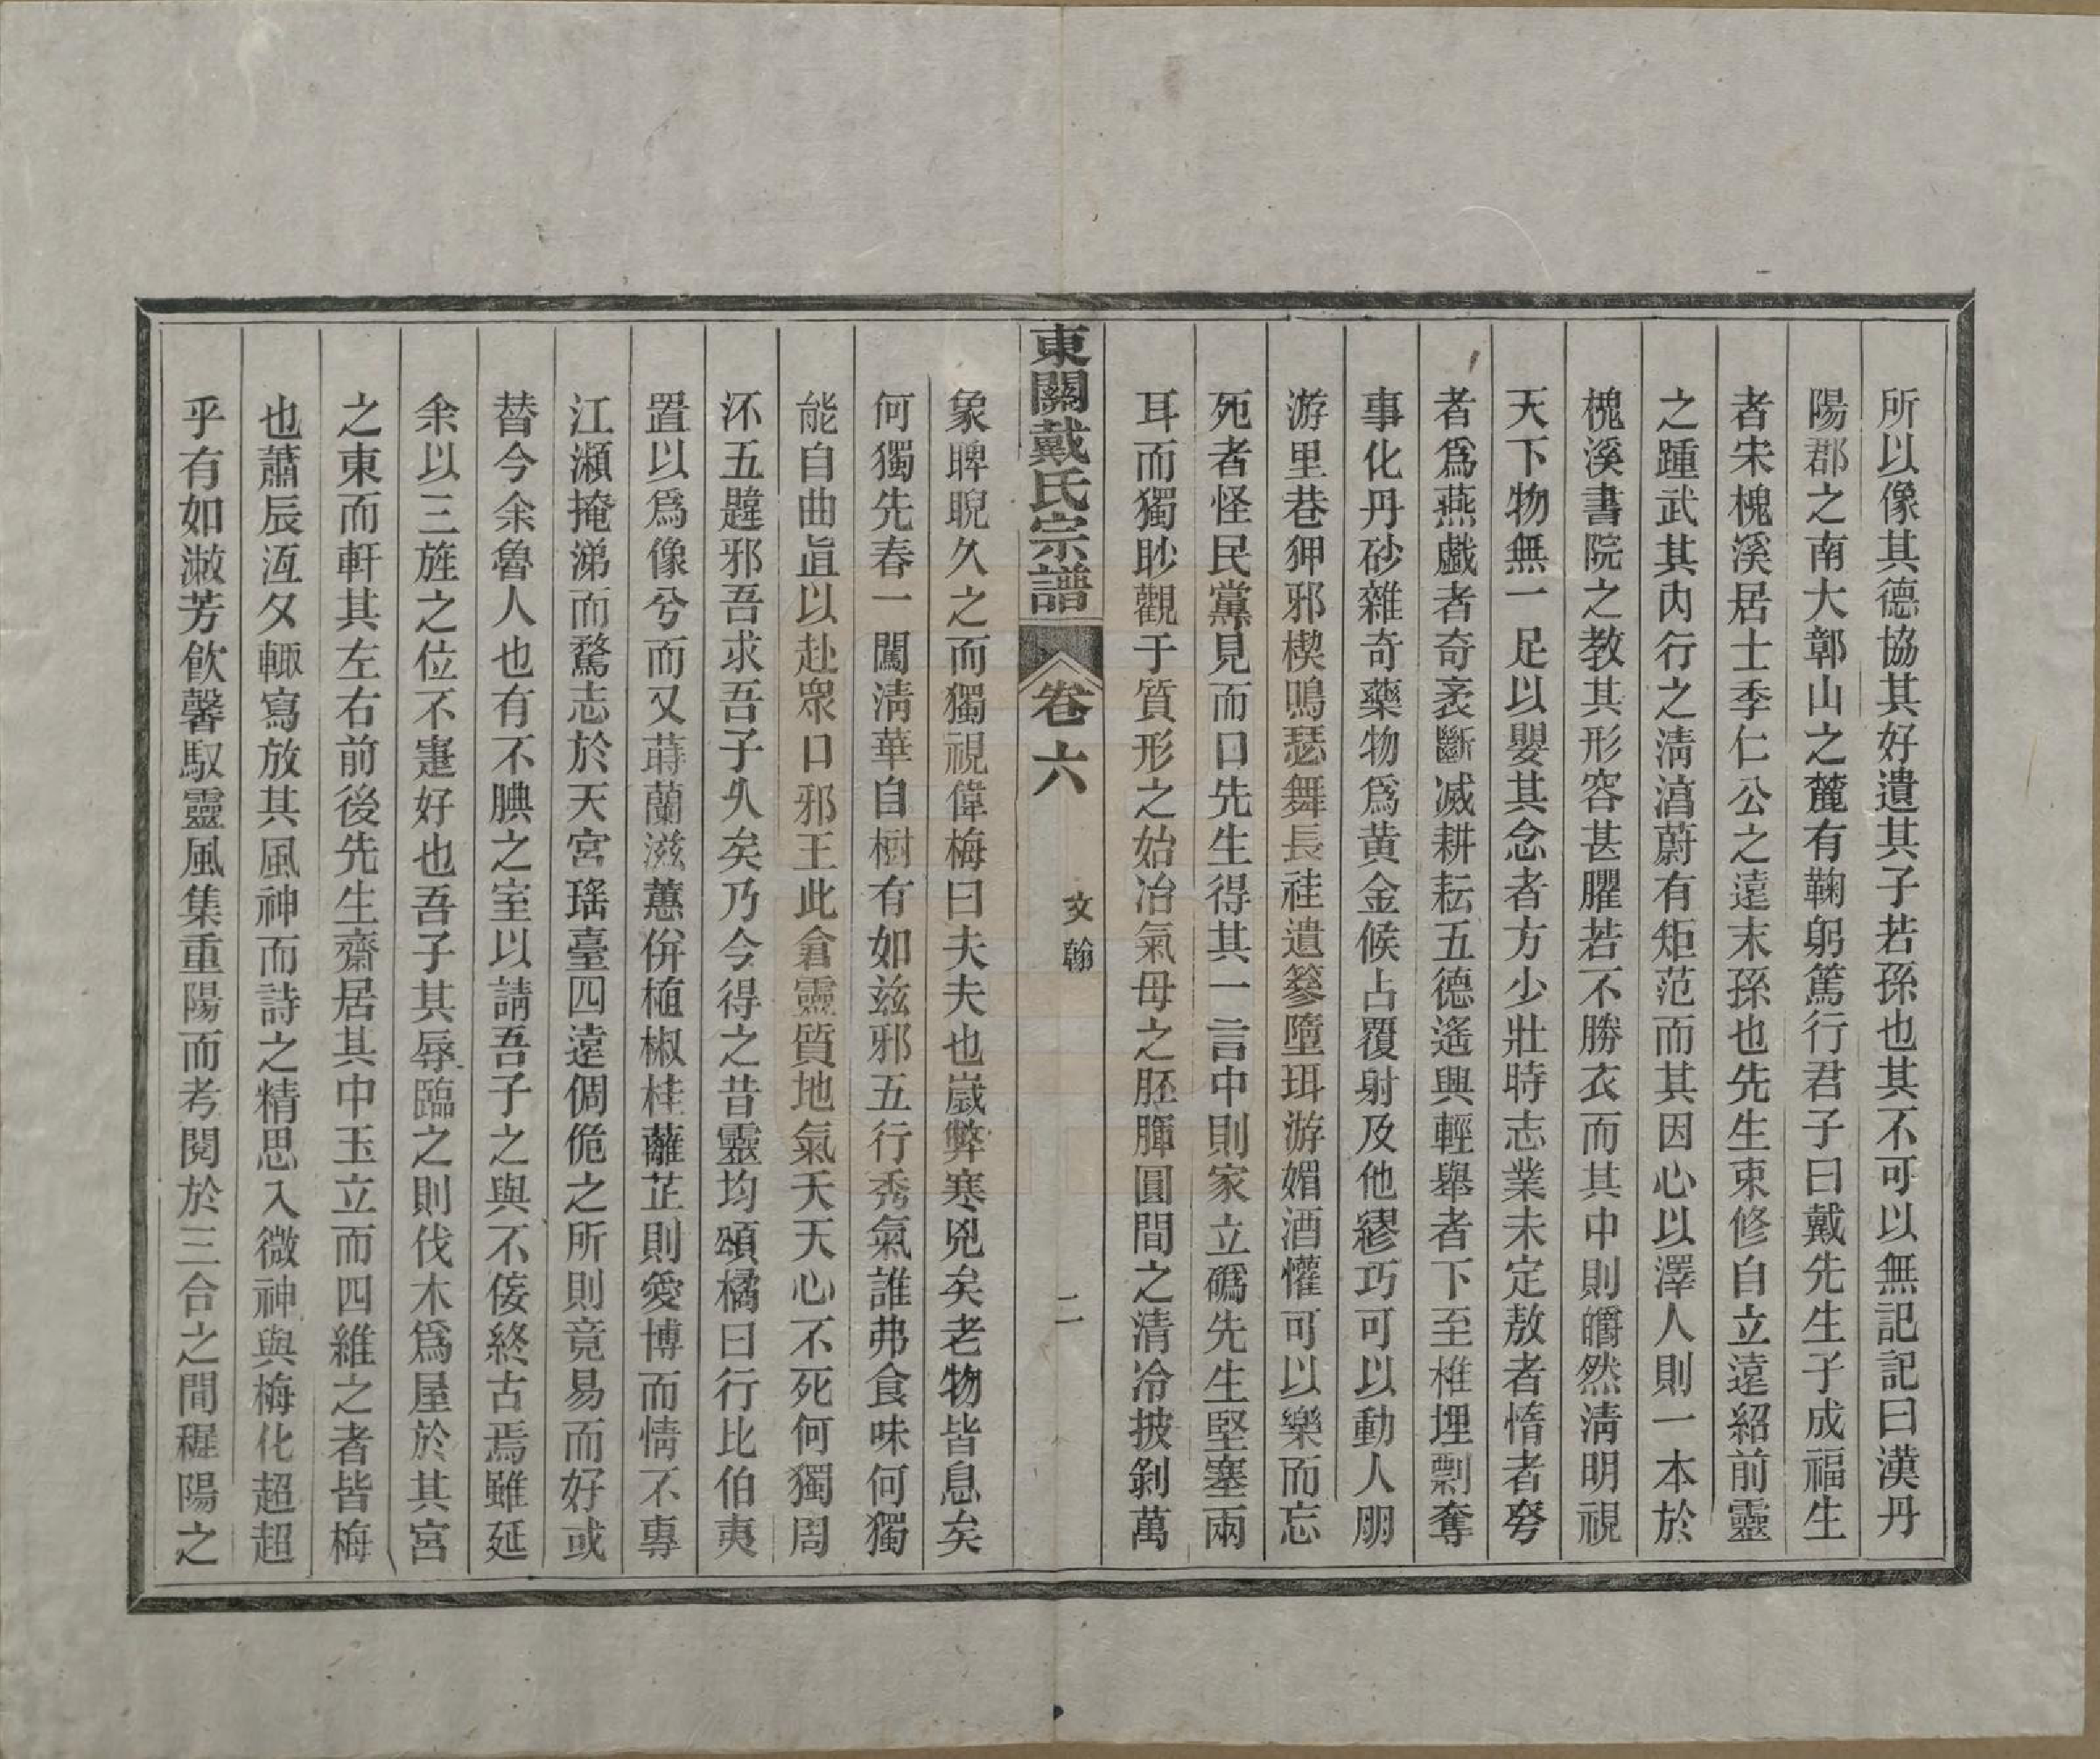 所以像其德協其好遺其子若孫也其不可以無記記曰漢丹
陽郡之南大鄣山之麓有鞠躬篤行君子曰戴先生子成福生
者宋槐溪居士季仁公之遠末孫也先生束修自立遠紹前靈
之踵武其內行之淸滀蔚有矩范而其因心以澤人則一本於
槐溪書院之教其形容甚臞若不勝衣而其中則皭然淸明視
天下物無一足以嬰其念者方少壯時志業未定敖者惰者勞
者爲燕戲者奇袤斷滅耕耘五德遙興輕舉者下至椎埋剽奪
事化丹砂雜奇藥物爲黃金候占覆射及他繆巧可以動人朋
游里巷狎邪楔鳴瑟舞長袿遺簪墮珥游媚酒懽可以樂而忘
死者怪民黨見而口先生得其一言中則家立碼先生堅塞兩
耳而獨眇觀于質形之始冶氣母之胚腪圓間之清冷披剝萬
東關戴氏宗譜 卷六 文翰 二
象睥睨久之而獨視偉梅曰夫夫也嵗弊寒兇矣老物皆息矣
何獨先春一闖淸華自樹有如兹邪五行秀氣誰弗食味何獨
能自曲眞以赴衆口邪王此倉靈質地氣天天心不死何獨周
汱五韙邪吾求吾子久矣乃今得之昔靈均頌橘曰行比伯夷
置以爲像兮而又蒔蘭滋蕙併植椒桂蘺芷則愛博而情不專
江瀬掩涕而騖志於天宮瑤臺四遠倜佹之所則竟易而好或
替今余魯人也有不腆之室以請吾子之與不倭終古焉雖延
余以三旌之位不疌好也吾子其辱臨之則伐木爲屋於其宮
之東而軒其左右前後先生齋居其中玉立而四維之者皆梅
也蕭辰沍夂輙寫放其風神而詩之精思入微神與梅化超超
乎有如漱芳飮馨馭靈風集重陽而考閱於三合之間穉陽之